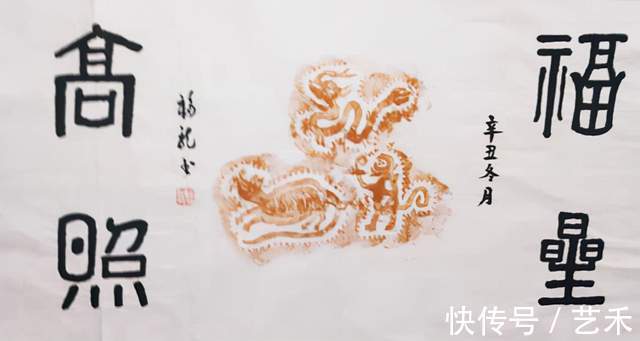 福星
辛丑冬月
高照
龙书
快传号 / 艺禾